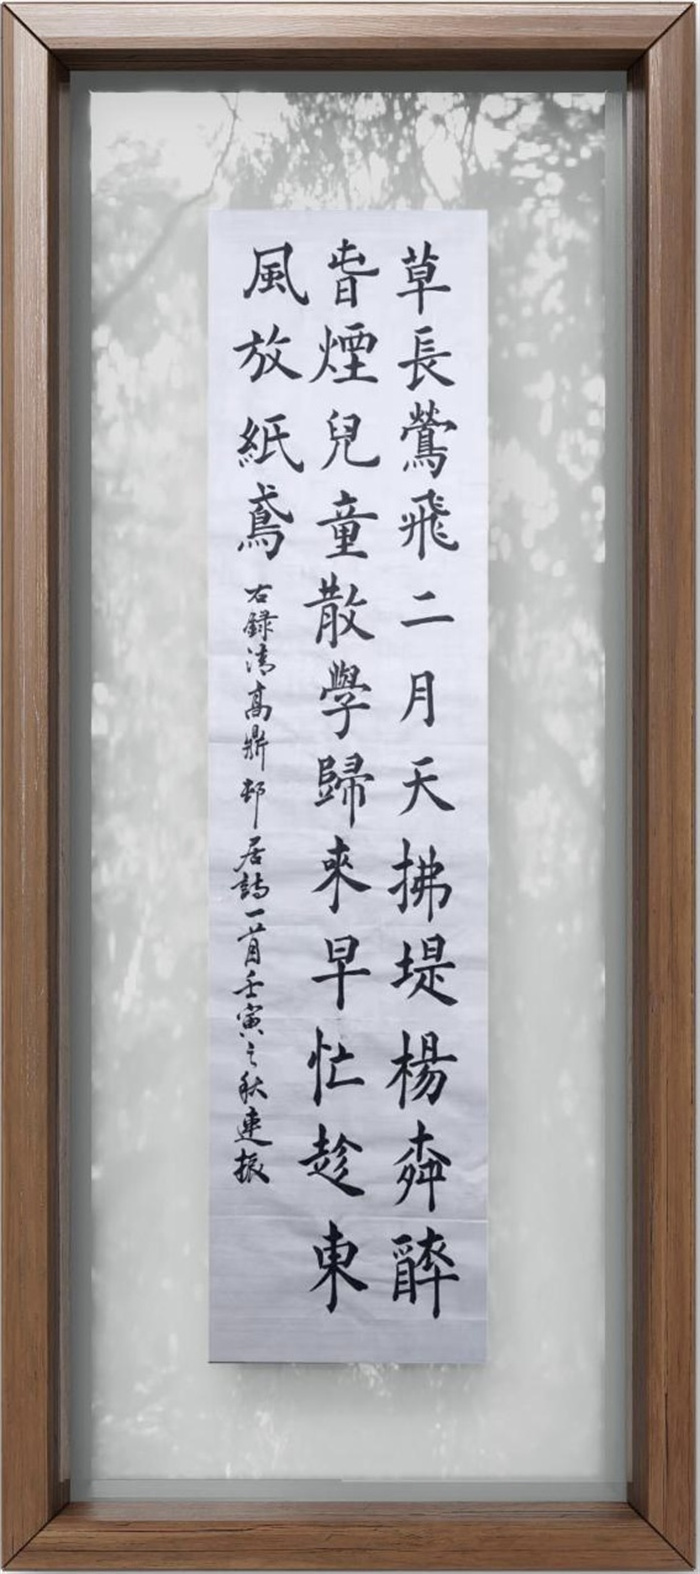 草長鶯飛二月天拂堤楊桺醉
旾煙兒童散學歸來早忙趁東
風放紙鳶
右録清高鼎邨居詩一首壬寅之秋連振